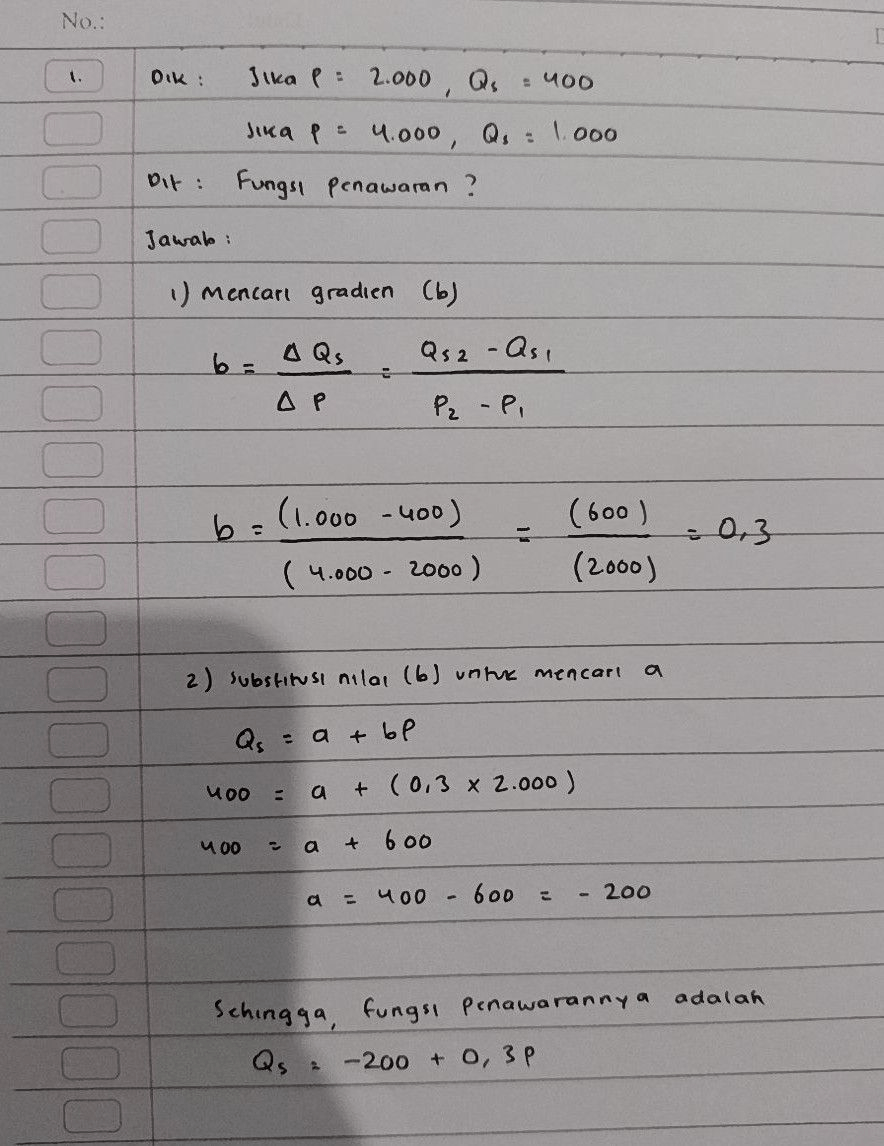 No.:
1. Dik : Jika P = 2.000, Qs = 400
Jika P = 4.000, Qs = 1.000
Dit : Fungsi Penawaran ?
Jawab :
1) Mencari gradien (b)
b = ΔQs / ΔP = Qs2 - Qs1 / P2 - P1
b = (1.000 - 400) / (4.000 - 2000) = (600) / (2000) = 0,3
2) Substitusi nilai (b) untuk mencari a
Qs = a + bP
400 = a + (0,3 x 2.000)
400 = a + 600
a = 400 - 600 = - 200
Sehingga, fungsi Penawarannya adalah
Qs = -200 + 0,3P